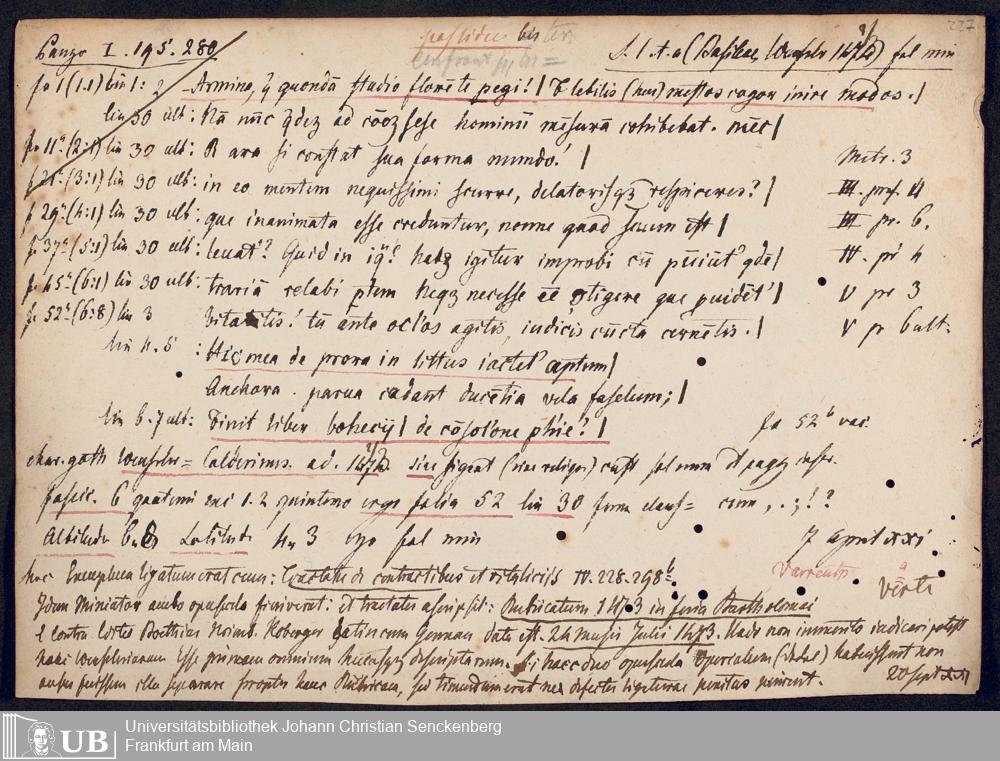 Panzer I. 195. 280
bis ter.
S. l. t. a (Basileae, Wenssler 147 ) fol min
227
fo 1 (1:1) lin 1: 2 Armino, quondā studio florēte pegi! | Flebilis (heu) mestos cogor inire modos. |
lin 30 ult: Nā nūc qdez ad cōoz sese hominū mēsurā cohibebat. nūc |
fo 11a (2:1) lin 30 ult: R ara si constat sua forma mundo! |
Metr. 3
f 21a (3:1) lin 30 ult: in eo mentem nequissimi scurre, delatorisqz respiceres? |
III. pros. 4
f 29a (4:1) lin 30 ult: que inanimata esse creduntur, nonne quod suum est |
III pr. 6.
f. 37a (5:1) lin 30 ult: leuat? Quid in iq? habz igitur improbi cū puiūt qde |
IV. pr 4
f. 45a (6:1) lin 30 ult: trariā celabi ptem Neqz necesse eē ctigere que puidēt |
V pr 3
f. 52a (6:8) lin 3 bitatis! cū ante oclos agitis, iudicis cūcta cernētis. |
V p 6 ult.
lin 4. 5 : Hic mea de prora in littus iactet aptum |
Anchora. parua cadant ducētia vela faselum; |
lin 6-7 ult: Finit liber bohecij | de cōsolone phie? |
fo 52b vac.
char. goth Wenssler= Calderinus. ad. 147 . sine signat (sine reliqs) cust fol num et pagg
fascic. 6 quaterni exc 1. 2 quinterno ergo folia 52 lin 30 com , . ; ! ?
Altitudo 6„ 8 Latitudo 4„ 3 ego fol min
7 april xxi
hoc Exemplum ligatum erat cum: Tractatu de contractibus et vsuris IV. 228-298b.
Varrentr
verte
Idem Miniator ambo opuscula finiverat: et tractatui ascripsit: Rubricatum 1473 in feria Bartholomei
E contra Boethius Norimb. Koberger Latinorum German dati est. 24 mensis Julii 1473. Unde non immerito iudicari potest
hanc Wensslerianam esse primam omnium hucusqz descriptarum. Si haec duo opuscula Operculum habuissent non
ausus fuissem illa separare propter hanc Rubricam, sed timendum erat ne defectu ligaturae penitus perirent.
20 Sept xxi
Universitätsbibliothek Johann Christian Senckenberg
Frankfurt am Main
UB